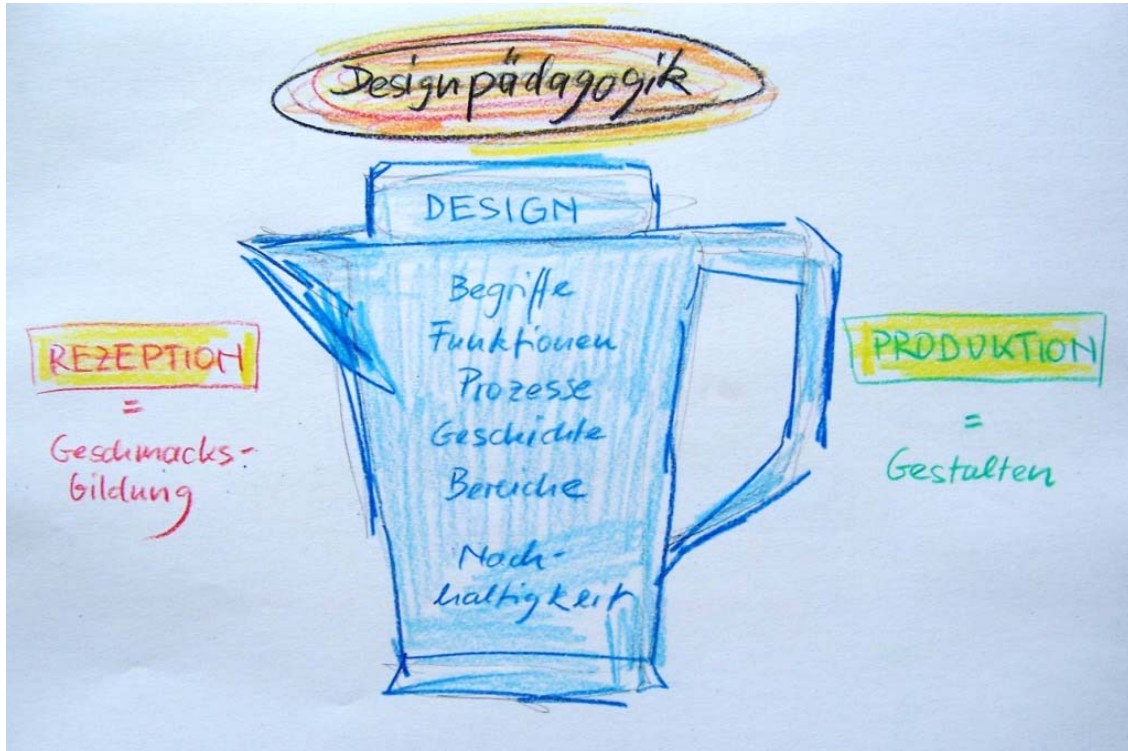 Designpädagogik
DESIGN
Begriffe
Funktionen
Prozesse
Geschichte
Bereiche
Nach-
haltigkeit
REZEPTION
=
Geschmacks-
bildung
PRODUKTION
=
Gestalten